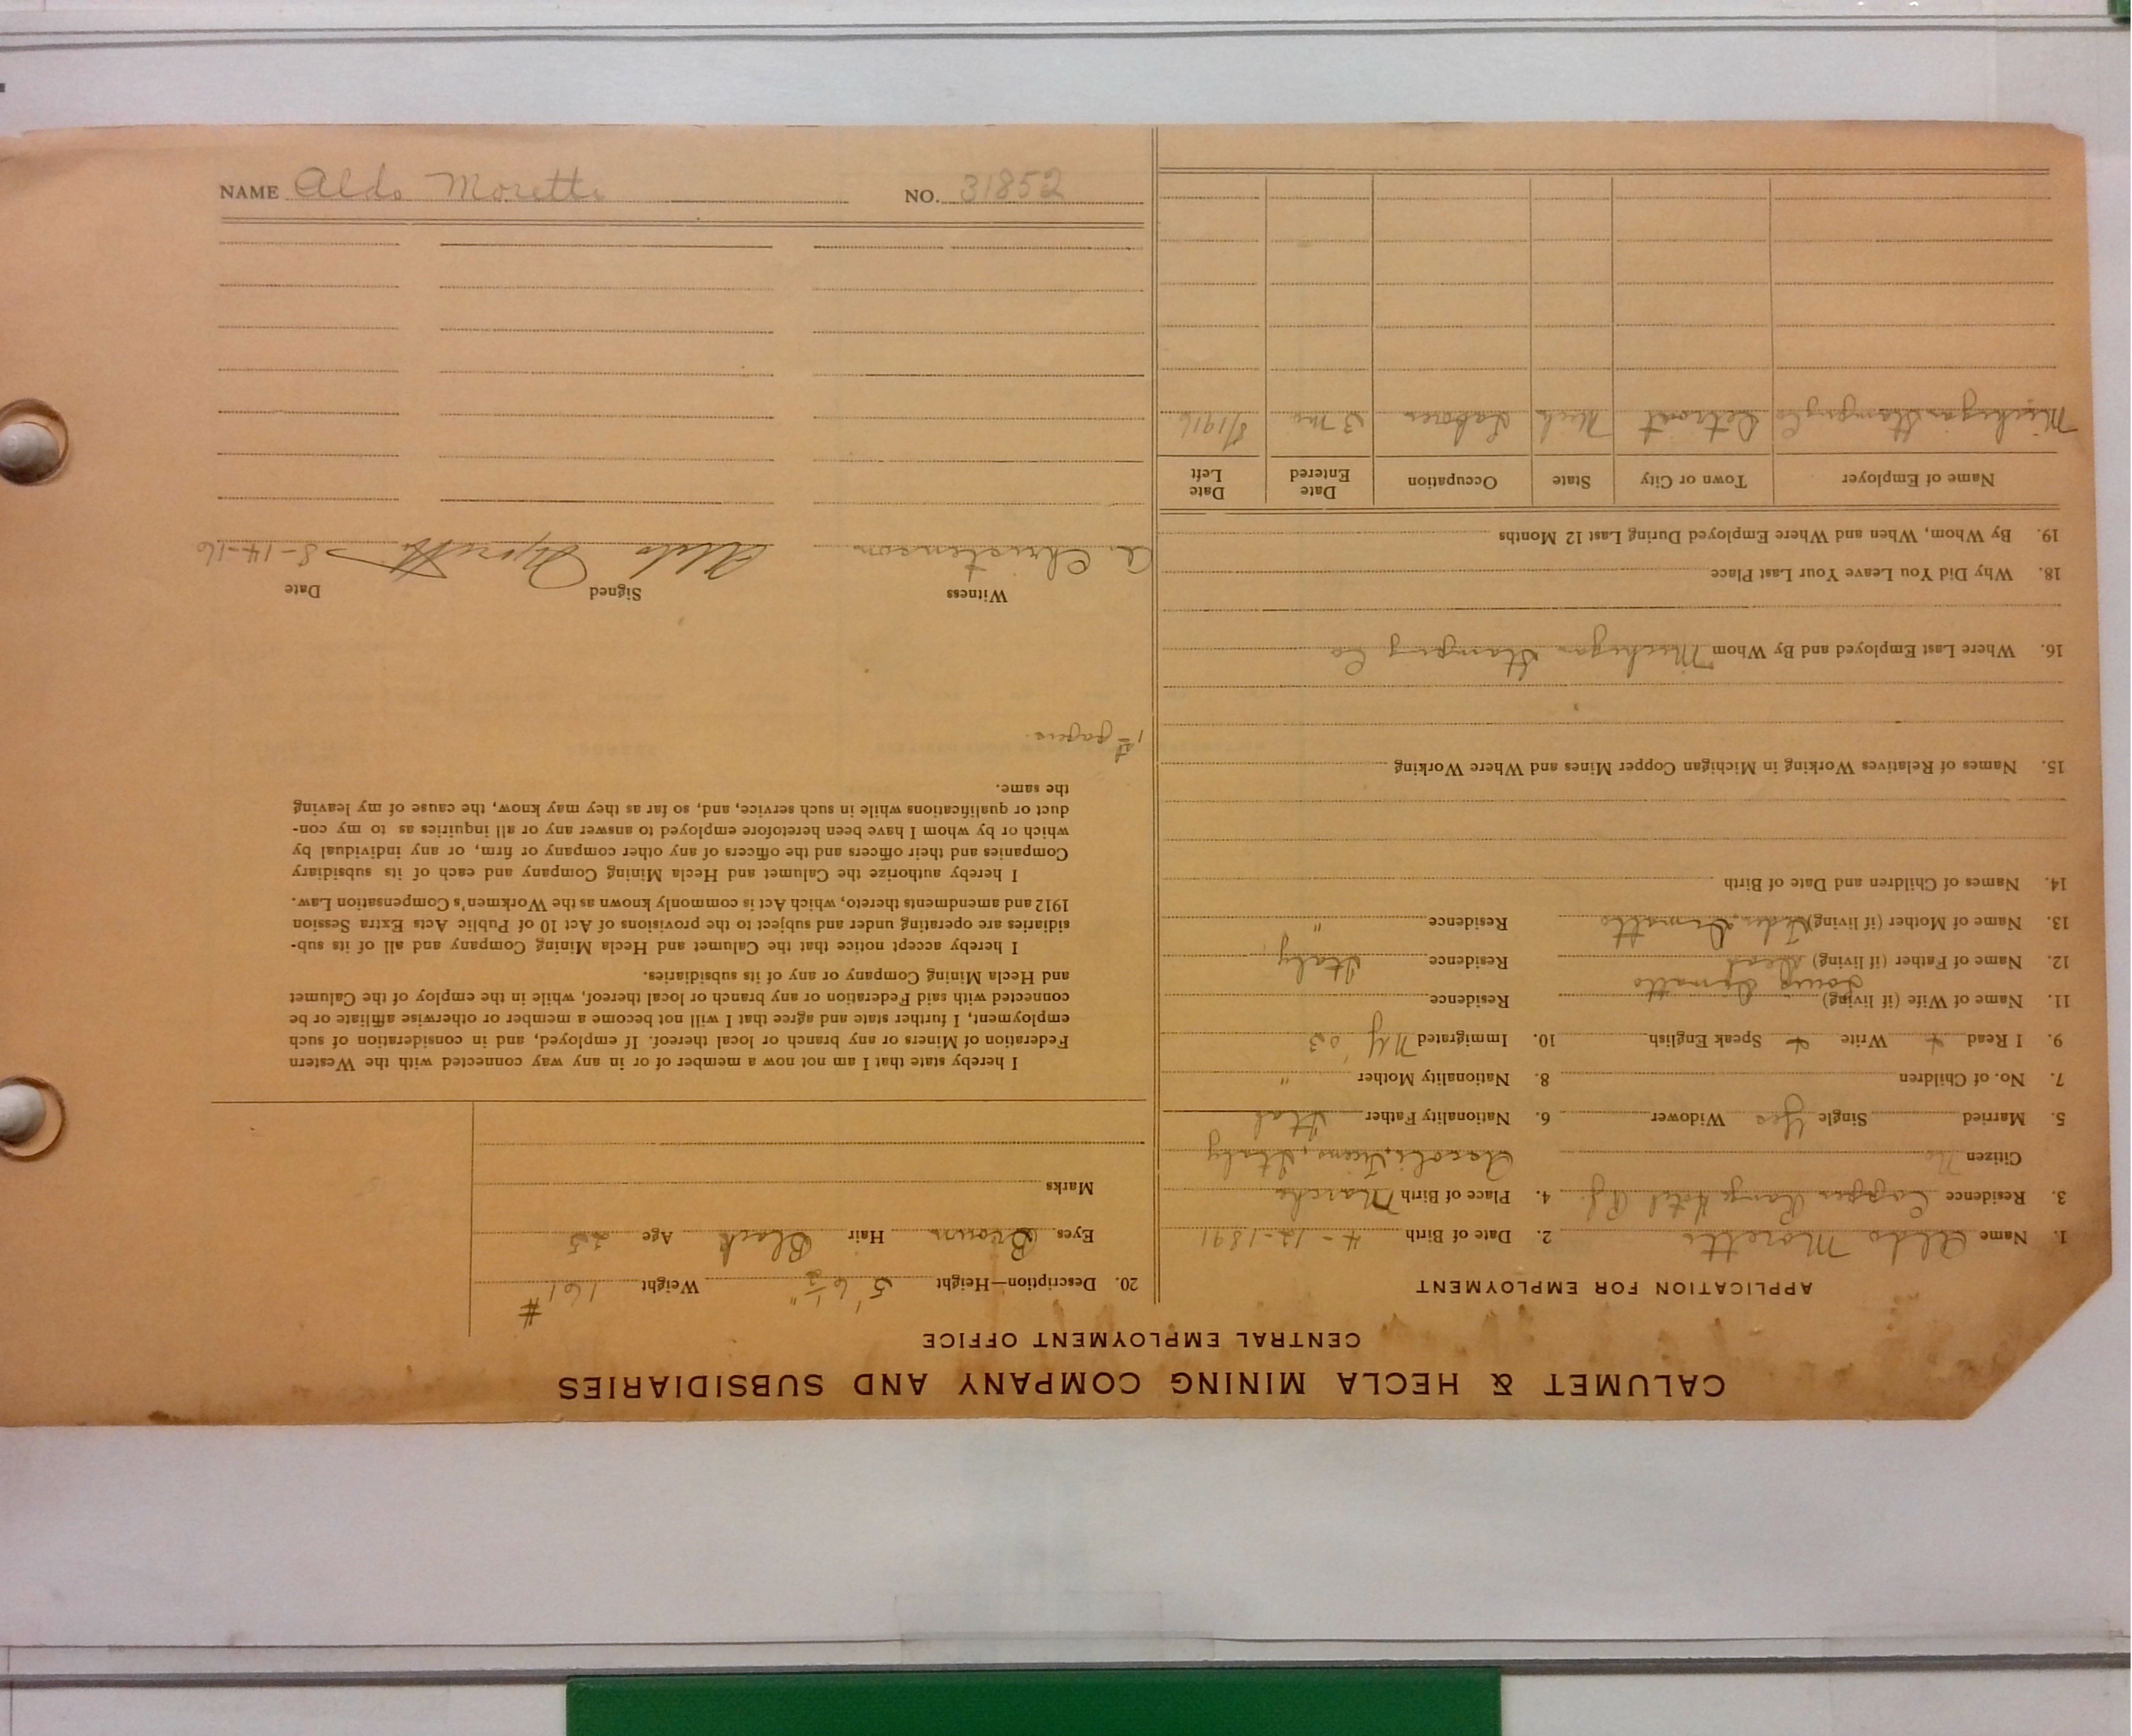 CALUMET & HECLA MINING COMPANY AND SUBSIDIARIES
CENTRAL EMPLOYMENT OFFICE
APPLICATION FOR EMPLOYMENT
1. Name Aldo Moretti 2. Date of Birth 4-12-1891
3. Residence Copper Range Hotel 4. Place of Birth Marche
Citizen No Ascoli, Italy
5. Married Single Yes Widower 6. Nationality Father Ital
7. No. of Children 8. Nationality Mother "
9. I Read Write Speak English 10. Immigrated NY '03
11. Name of Wife (if living) Residence
12. Name of Father (if living) Residence Italy
13. Name of Mother (if living) Residence "
14. Names of Children and Date of Birth
15. Names of Relatives Working in Michigan Copper Mines and Where Working
16. Where Last Employed and By Whom Michigan Stamping Co
18. Why Did You Leave Your Last Place
19. By Whom, When and Where Employed During Last 12 Months
Name of Employer Town or City State Occupation Date Entered Date Left
Michigan Stamping Co Detroit Mich Laborer 3 mo 8/1916
20. Description—Height 5' 6 1/2" Weight 161 #
Eyes Brown Hair Black Age 25
Marks
I hereby state that I am not now a member of or in any way connected with the Western
Federation of Miners or any branch or local thereof. If employed, and in consideration of such
employment, I further state and agree that I will not become a member or otherwise affiliate or be
connected with said Federation or any branch or local thereof, while in the employ of the Calumet
and Hecla Mining Company or any of its subsidiaries.
I hereby accept notice that the Calumet and Hecla Mining Company and all of its sub-
sidiaries are operating under and subject to the provisions of Act 10 of Public Acts Extra Session
1912 and amendments thereto, which Act is commonly known as the Workmen's Compensation Law.
I hereby authorize the Calumet and Hecla Mining Company and each of its subsidiary
Companies and their officers and the officers of any other company or firm, or any individual by
which or by whom I have been heretofore employed to answer any or all inquiries as to my con-
duct or qualifications while in such service, and, so far as they may know, the cause of my leaving
the same.
1st papers.
Witness Signed Date
A. Christenson Aldo Moretti 8-14-16
NAME Aldo Moretti NO. 31852